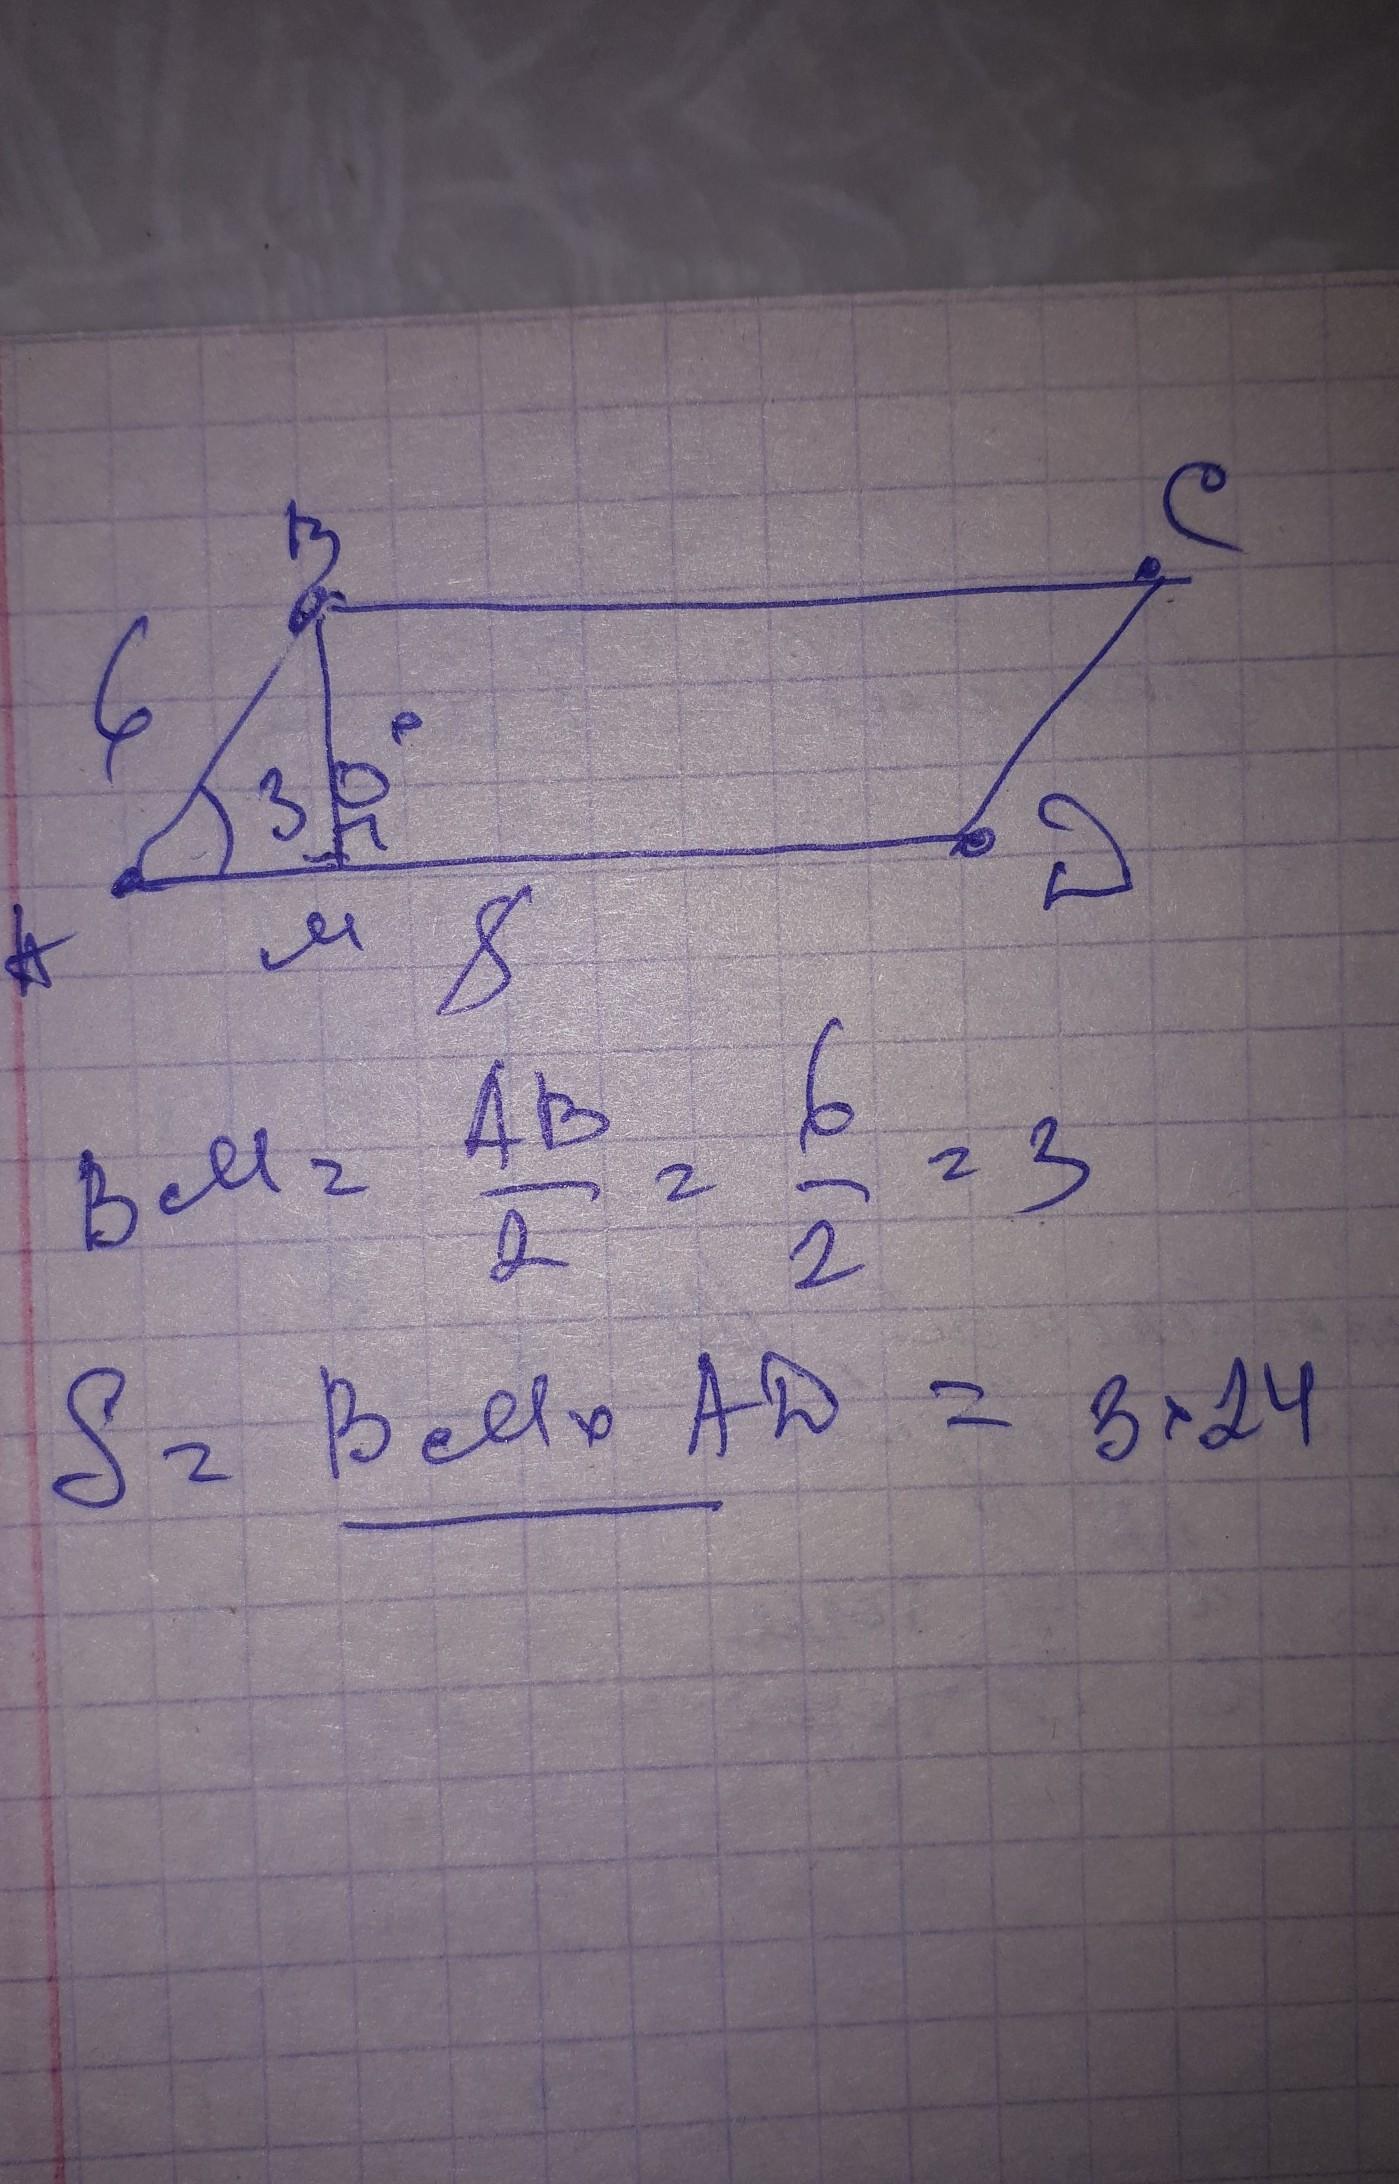 B
C
6
30°
A
M
8
D
BM = AB/2 = 6/2 = 3
S = BM × AD = 3 × 24